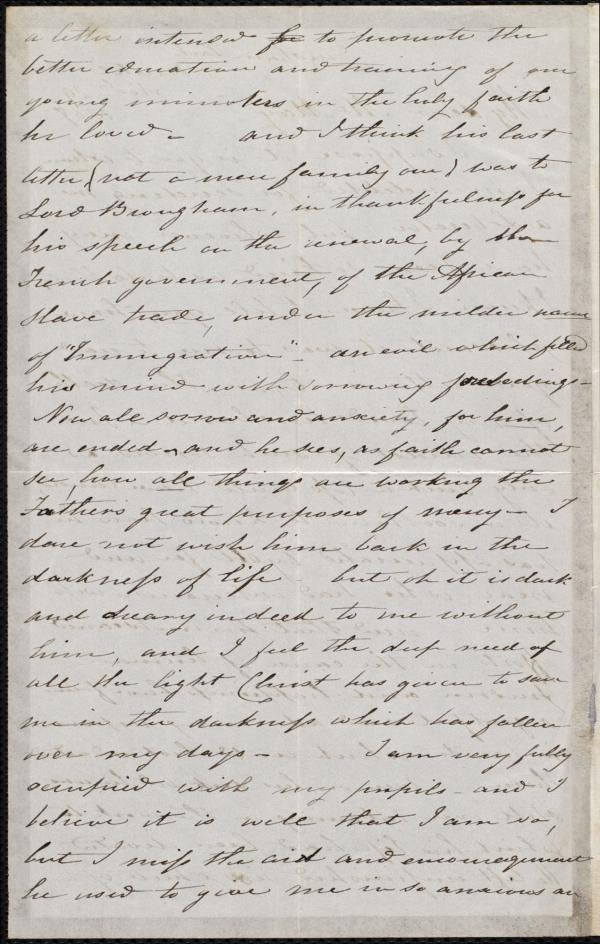 a letter intended for to promote the
better education and training of our
young ministers in the holy faith
he loved - and I think his last
letter (not a mere family one) was to
Lord Brougham, in thankfulness for
his speech on the renewal, by the
French government, of the African
slave trade, under the milder name
of "Immigration" - an evil which filled
his mind with sorrowing forebodings -
Now all sorrow and anxiety, for him,
are ended - and he sees, as faith cannot
see, how all things are working the
Father's great purposes of mercy - I
dare not wish him back in the
darkness of life - but oh it is dark
and dreary indeed to me without
him, and I feel the deep need of
all the light Christ has given to save
me in the darkness which has fallen
over my days - I am very fully
occupied with my pupils - and I
believe it is well that I am so,
but I miss the aid and encouragement
he used to give me in so anxious an